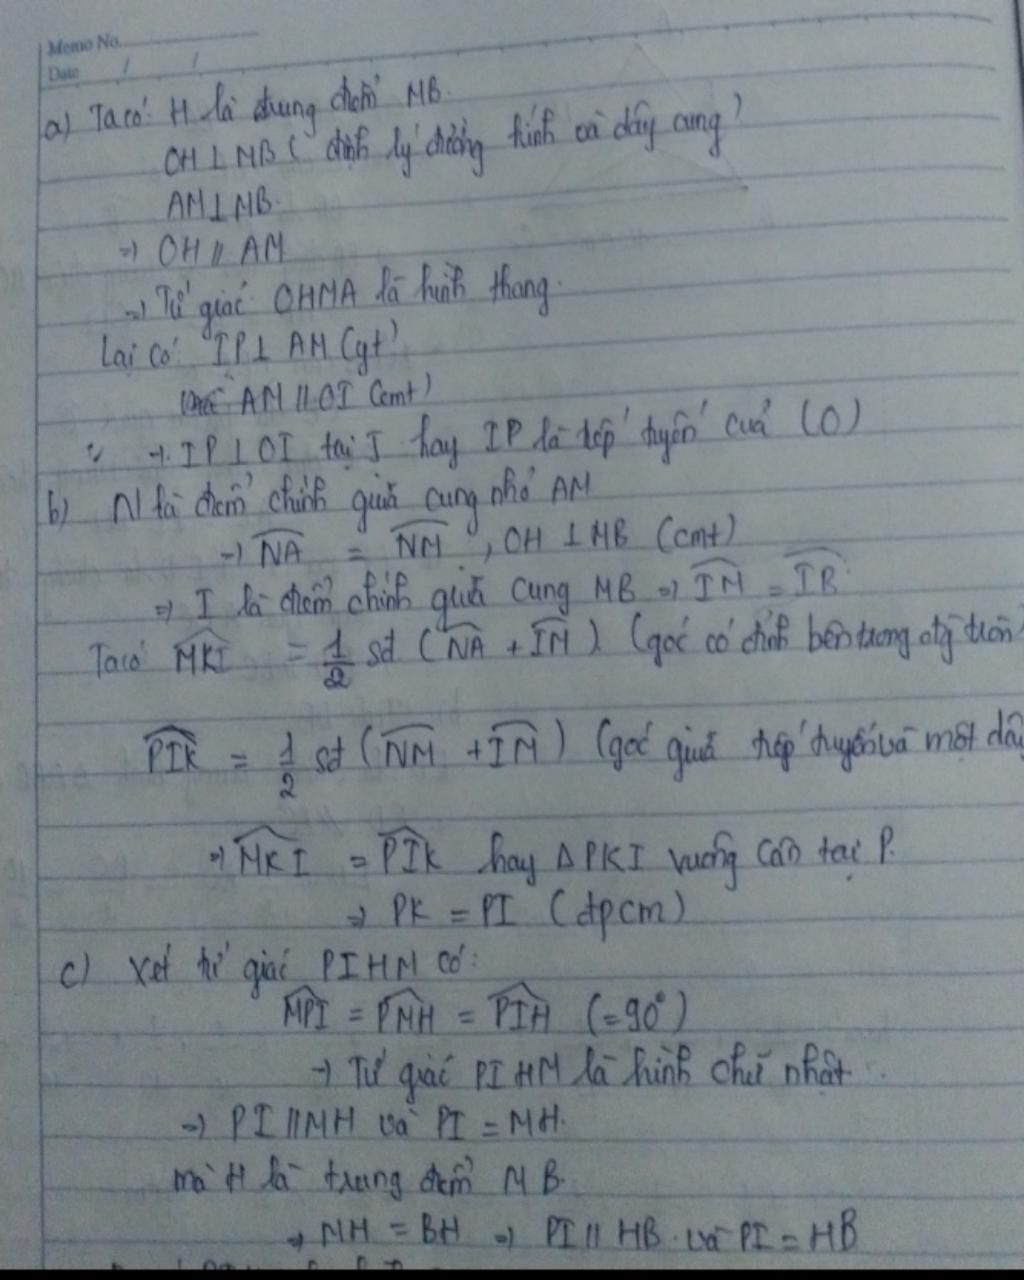 Memo No.
Date / /
a) Ta có: H là trung điểm MB.
OH ⊥ MB ( định lý đường kính và dây cung )
AM ⊥ MB.
=> OH // AM
=> Tứ giác OHMA là hình thang.
Lại có: IP ⊥ AM (gt)
AM // OI (cmt)
→ IP ⊥ OI tại I hay IP là tiếp tuyến của (O)
b) N là điểm chính giữa cung nhỏ AM
=> NA = NM , OH ⊥ MB (cmt)
=> I là điểm chính giữa cung MB => IM = IB
Ta có MKI = 1/2 sđ ( NA + IM ) (góc có đỉnh bên trong đg tròn)
PIK = 1/2 sđ ( NM + IM ) (góc giữa tiếp tuyến và một dây
=> MKI = PIK hay Δ PKI vuông cân tại P.
=> PK = PI (đpcm)
c) Xét tứ giác PIHM có:
MPI = PMH = PIH (= 90°)
→ Tứ giác PIHM là hình chữ nhật.
=> PI // MH và PI = MH.
mà H là trung điểm MB.
=> MH = BH => PI // HB và PI = HB